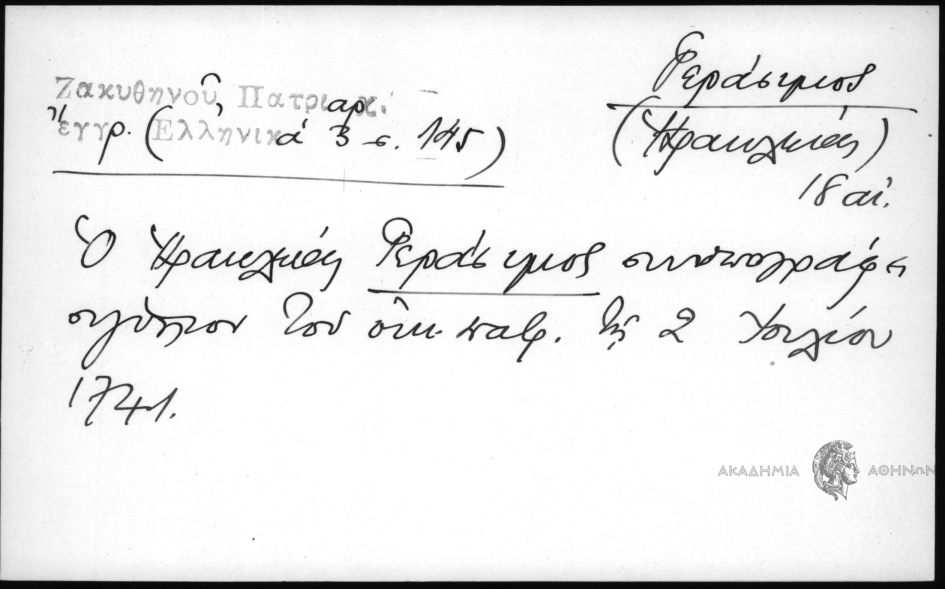 Ζακυθηνοῦ, Πατριαρχ.
ἔγγρ. (Ἑλληνικά 3 σ. 145)
Γεράσιμος
(Ἡρακλείας)
18 αἰ.
Ὁ Ἡρακλείας Γεράσιμος συνυπογράφει
σιγίλλιον τοῦ οἰκ. πατρ. τῇ 2 Ἰουλίου
1741.
ΑΚΑΔΗΜΙΑ ΑΘΗΝΩΝ